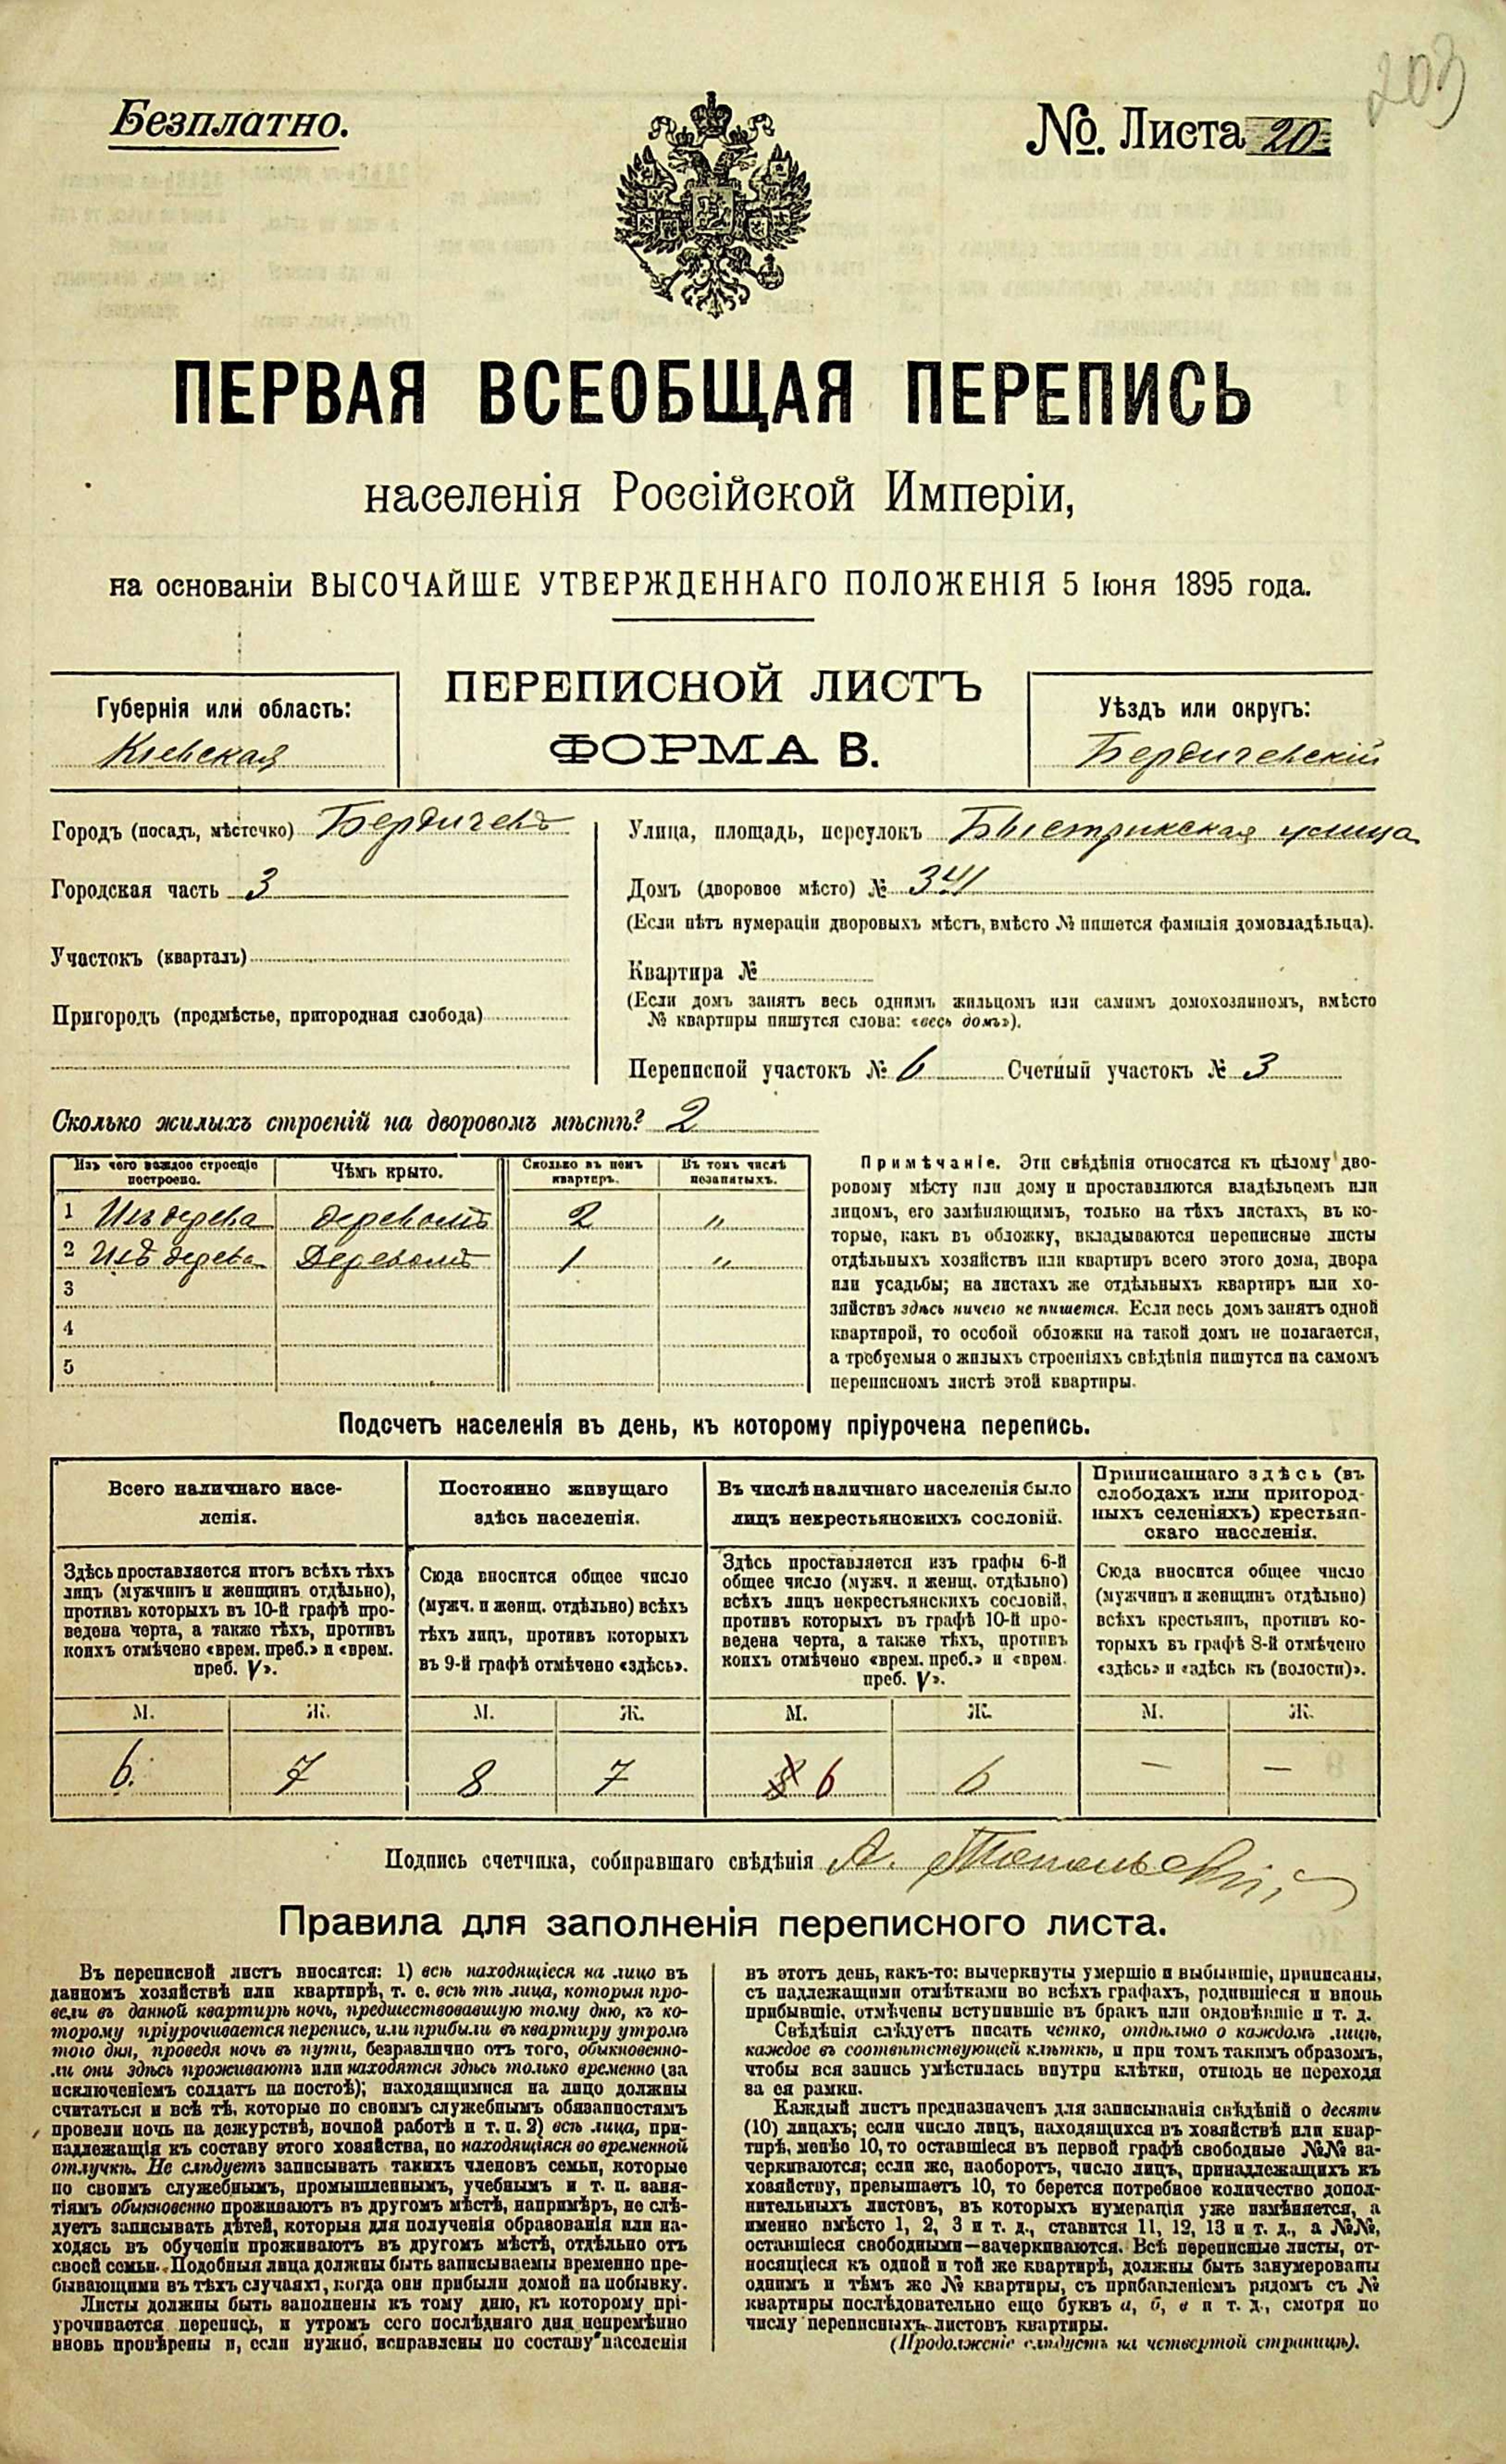 203
Безплатно.
No. Листа 20
ПЕРВАЯ ВСЕОБЩАЯ ПЕРЕПИСЬ
населенія Россійской Имперіи,
на основаніи ВЫСОЧАЙШЕ УТВЕРЖДЕННАГО ПОЛОЖЕНІЯ 5 Іюня 1895 года.
ПЕРЕПИСНОЙ ЛИСТЪ
ФОРМА В.
Губернія или область:
Кіевская
Уѣздъ или округъ:
Бердичевскій
Городъ (посадъ, мѣстечко) Бердичевъ
Городская часть 3
Участокъ (кварталъ)
Пригородъ (предмѣстье, пригородная слобода)
Улица, площадь, переулокъ Быстрикская улица
Домъ (дворовое мѣсто) № 341
(Если нѣтъ нумераціи дворовыхъ мѣстъ, вмѣсто № пишется фамилія домовладѣльца).
Квартира №
(Если домъ занятъ весь однимъ жильцомъ или самимъ домохозяиномъ, вмѣсто
№ квартиры пишутся слова: «весь домъ»).
Переписной участокъ № 6 Счетный участокъ № 3
Сколько жилыхъ строеній на дворовомъ мѣстѣ? 2
Изъ чего каждое строеніе
построено.
Чѣмъ крыто.
Сколько въ немъ
квартиръ.
Въ томъ числѣ
незанятыхъ.
1 Изъ дерева деревомъ 2 "
2 Изъ дерева Деревомъ 1 "
3
4
5
Примѣчаніе. Эти свѣдѣнія относятся къ цѣлому дво-
ровому мѣсту или дому и проставляются владѣльцемъ или
лицомъ, его замѣняющимъ, только на тѣхъ листахъ, въ ко-
торые, какъ въ обложку, вкладываются переписные листы
отдѣльныхъ хозяйствъ или квартиръ всего этого дома, двора
или усадьбы; на листахъ же отдѣльныхъ квартиръ или хо-
зяйствъ здѣсь ничего не пишется. Если весь домъ занятъ одной
квартирой, то особой обложки на такой домъ не полагается,
а требуемыя о жилыхъ строеніяхъ свѣдѣнія пишутся на самомъ
переписномъ листѣ этой квартиры.
Подсчетъ населенія въ день, къ которому пріурочена перепись.
Всего наличнаго насе-
ленія.
Здѣсь проставляется итогъ всѣхъ тѣхъ
лицъ (мужчинъ и женщинъ отдѣльно),
противъ которыхъ въ 10-й графѣ про-
ведена черта, а также тѣхъ, противъ
коихъ отмѣчено «врем. преб.» и «врем.
преб. V».
М. Ж.
6. 7
Постоянно живущаго
здѣсь населенія.
Сюда вносится общее число
(мужч. и женщ. отдѣльно) всѣхъ
тѣхъ лицъ, противъ которыхъ
въ 9-й графѣ отмѣчено «здѣсь».
М. Ж.
8 7
Въ числѣ наличнаго населенія было
лицъ некрестьянскихъ сословій.
Здѣсь проставляется изъ графы 6-й
общее число (мужч. и женщ. отдѣльно)
всѣхъ лицъ некрестьянскихъ сословій,
противъ которыхъ въ графѣ 10-й про-
ведена черта, а также тѣхъ, противъ
коихъ отмѣчено «врем. преб.» и «врем.
преб. V».
М. Ж.
8 6 6
Приписаннаго здѣсь (въ
слободахъ или пригород-
ныхъ селеніяхъ) крестьян-
скаго населенія.
Сюда вносится общее число
(мужчинъ и женщинъ отдѣльно)
всѣхъ крестьянъ, противъ ко-
торыхъ въ графѣ 8-й отмѣчено
«здѣсь» и «здѣсь къ (волости)».
М. Ж.
— —
Подпись счетчика, собиравшаго свѣдѣнія А.
Правила для заполненія переписного листа.
Въ переписной листъ вносятся: 1) всѣ находящіеся на лицо въ
данномъ хозяйствѣ или квартирѣ, т. е. всѣ тѣ лица, которыя про-
вели въ данной квартирѣ ночь, предшествовавшую тому дню, къ ко-
торому пріурочивается перепись, или прибыли въ квартиру утромъ
того дня, проведя ночь въ пути, безразлично отъ того, обыкновенно-
ли они здѣсь проживаютъ или находятся здѣсь только временно (за
исключеніемъ солдатъ на постоѣ); находящимися на лицо должны
считаться и всѣ тѣ, которые по своимъ служебнымъ обязанностямъ
провели ночь на дежурствѣ, ночной работѣ и т. п. 2) всѣ лица, при-
надлежащія къ составу этого хозяйства, но находящіяся во временной
отлучкѣ. Не слѣдуетъ записывать такихъ членовъ семьи, которые
по своимъ служебнымъ, промышленнымъ, учебнымъ и т. п. заня-
тіямъ обыкновенно проживаютъ въ другомъ мѣстѣ, напримѣръ, не слѣ-
дуетъ записывать дѣтей, которыя для полученія образованія или на-
ходясь въ обученіи проживаютъ въ другомъ мѣстѣ, отдѣльно отъ
своей семьи. Подобныя лица должны быть записываемы временно пре-
бывающими въ тѣхъ случаяхъ, когда они прибыли домой на побывку.
Листы должны быть заполнены къ тому дню, къ которому прі-
урочивается перепись, и утромъ сего послѣдняго дня непремѣнно
вновь провѣрены и, если нужно, исправлены по составу населенія
въ этотъ день, какъ-то: вычеркнуты умершіе и выбывшіе, приписаны,
съ надлежащими отмѣтками во всѣхъ графахъ, родившіеся и вновь
прибывшіе, отмѣчены вступившіе въ бракъ или овдовѣвшіе и т. д.
Свѣдѣнія слѣдуетъ писать четко, отдѣльно о каждомъ лицѣ,
каждое въ соотвѣтствующей клѣткѣ, и при томъ такимъ образомъ,
чтобы вся запись умѣстилась внутри клѣтки, отнюдь не переходя
за ея рамки.
Каждый листъ предназначенъ для записыванія свѣдѣній о десяти
(10) лицахъ; если число лицъ, находящихся въ хозяйствѣ или квар-
тирѣ, менѣе 10, то оставшіеся въ первой графѣ свободные №№ за-
черкиваются; если же, наоборотъ, число лицъ, принадлежащихъ къ
хозяйству, превышаетъ 10, то берется потребное количество допол-
нительныхъ листовъ, въ которыхъ нумерація уже измѣняется, а
именно вмѣсто 1, 2, 3 и т. д., ставится 11, 12, 13 и т. д., а №№,
оставшіеся свободными—зачеркиваются. Всѣ переписные листы, от-
носящіеся къ одной и той же квартирѣ, должны быть занумерованы
однимъ и тѣмъ же № квартиры, съ прибавленіемъ рядомъ съ №
квартиры послѣдовательно еще буквъ а, б, в и т. д., смотря по
числу переписныхъ листовъ квартиры.
(Продолженіе слѣдуетъ на четвертой страницѣ).